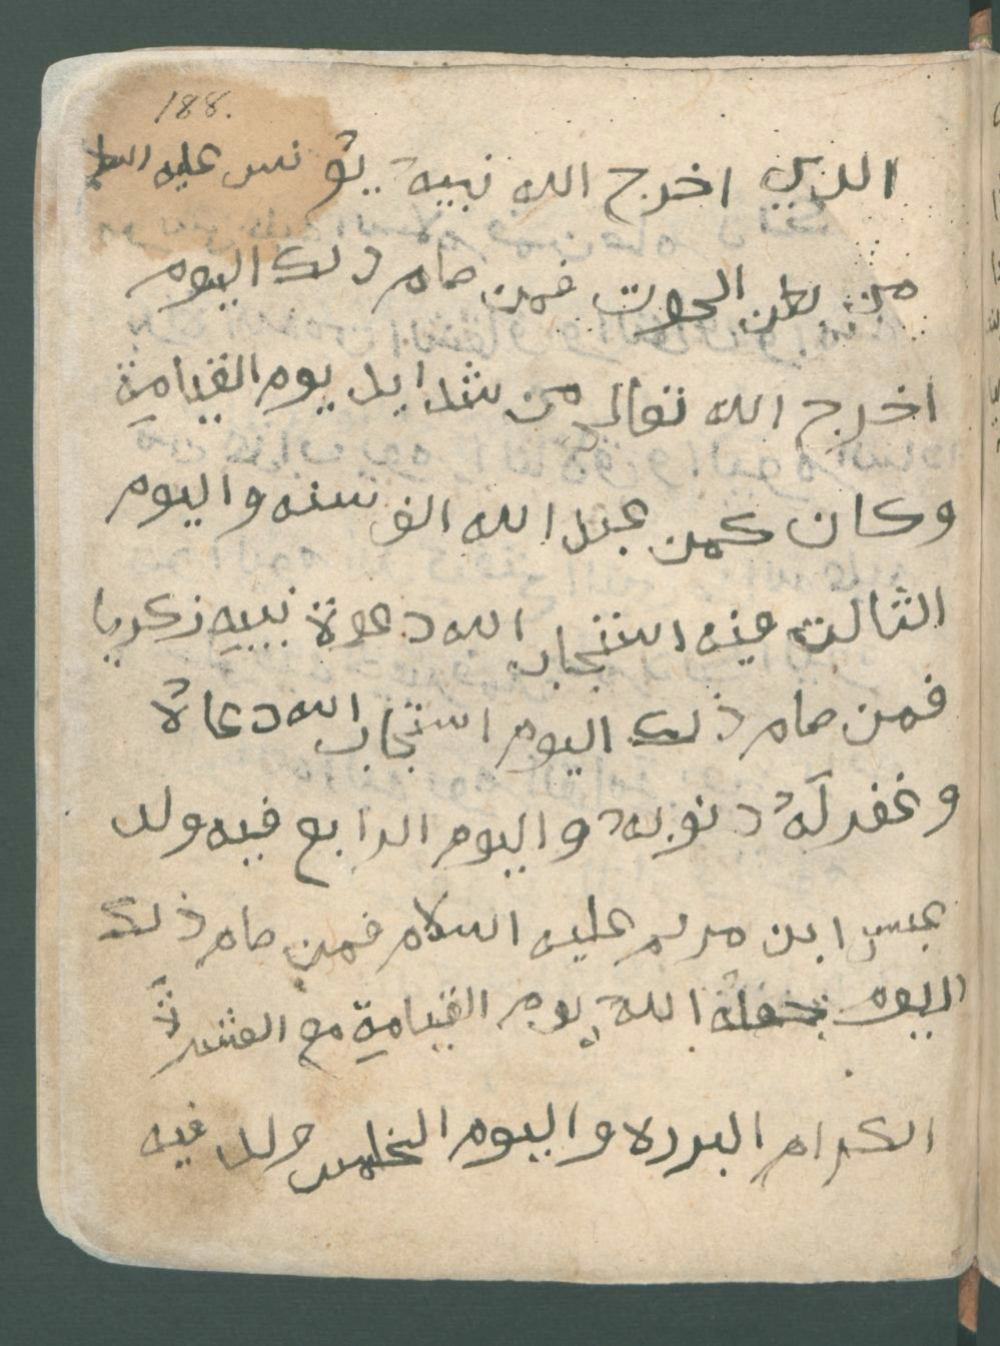 188.
الذي اخرج الله نبيه يونس عليه السلام
من بطن الحوت فمن صام ذلك اليوم
اخرج الله تعالي من شدايد يوم القيامة
وكان كمن عبد الله الف سنه واليوم
الثالت فيه استجاب الله دعوة نبيه زكريا
فمن صام ذلك اليوم استجاب الله دعاة
وغفر له دنوبه واليوم الرابع فيه ولد
عيسي ابن مريم عليه السلام فمن صام ذلك
اليوم الله يوم القيامة مع السفرة
الكرام البرره واليوم الخامس ولد فيه